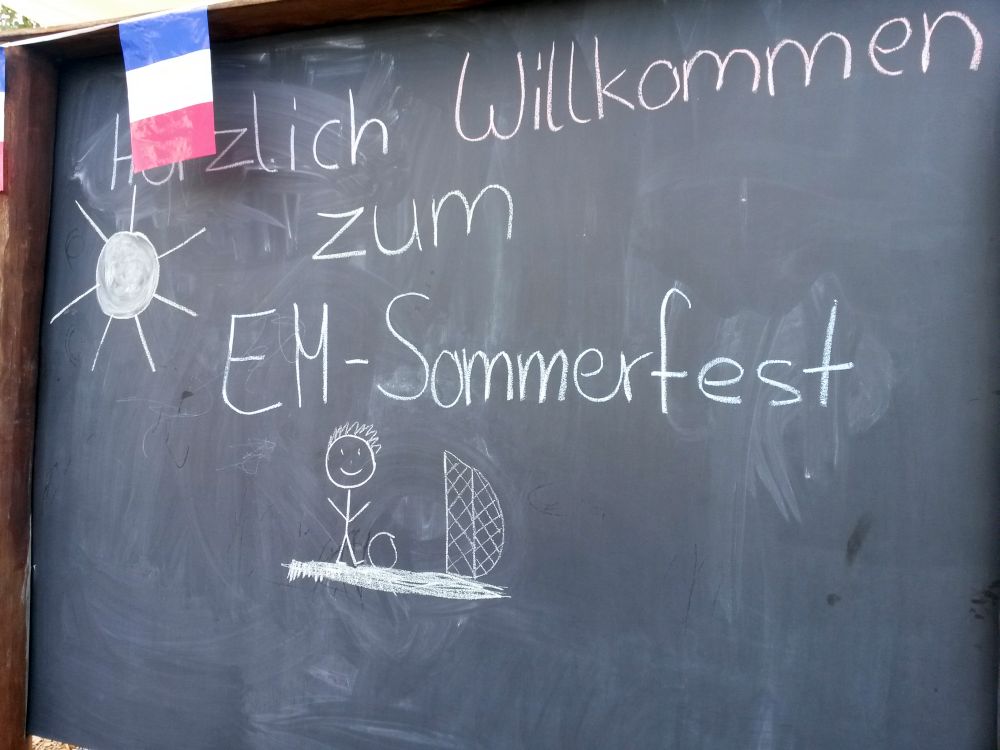 Herzlich Willkommen
zum
EM-Sommerfest